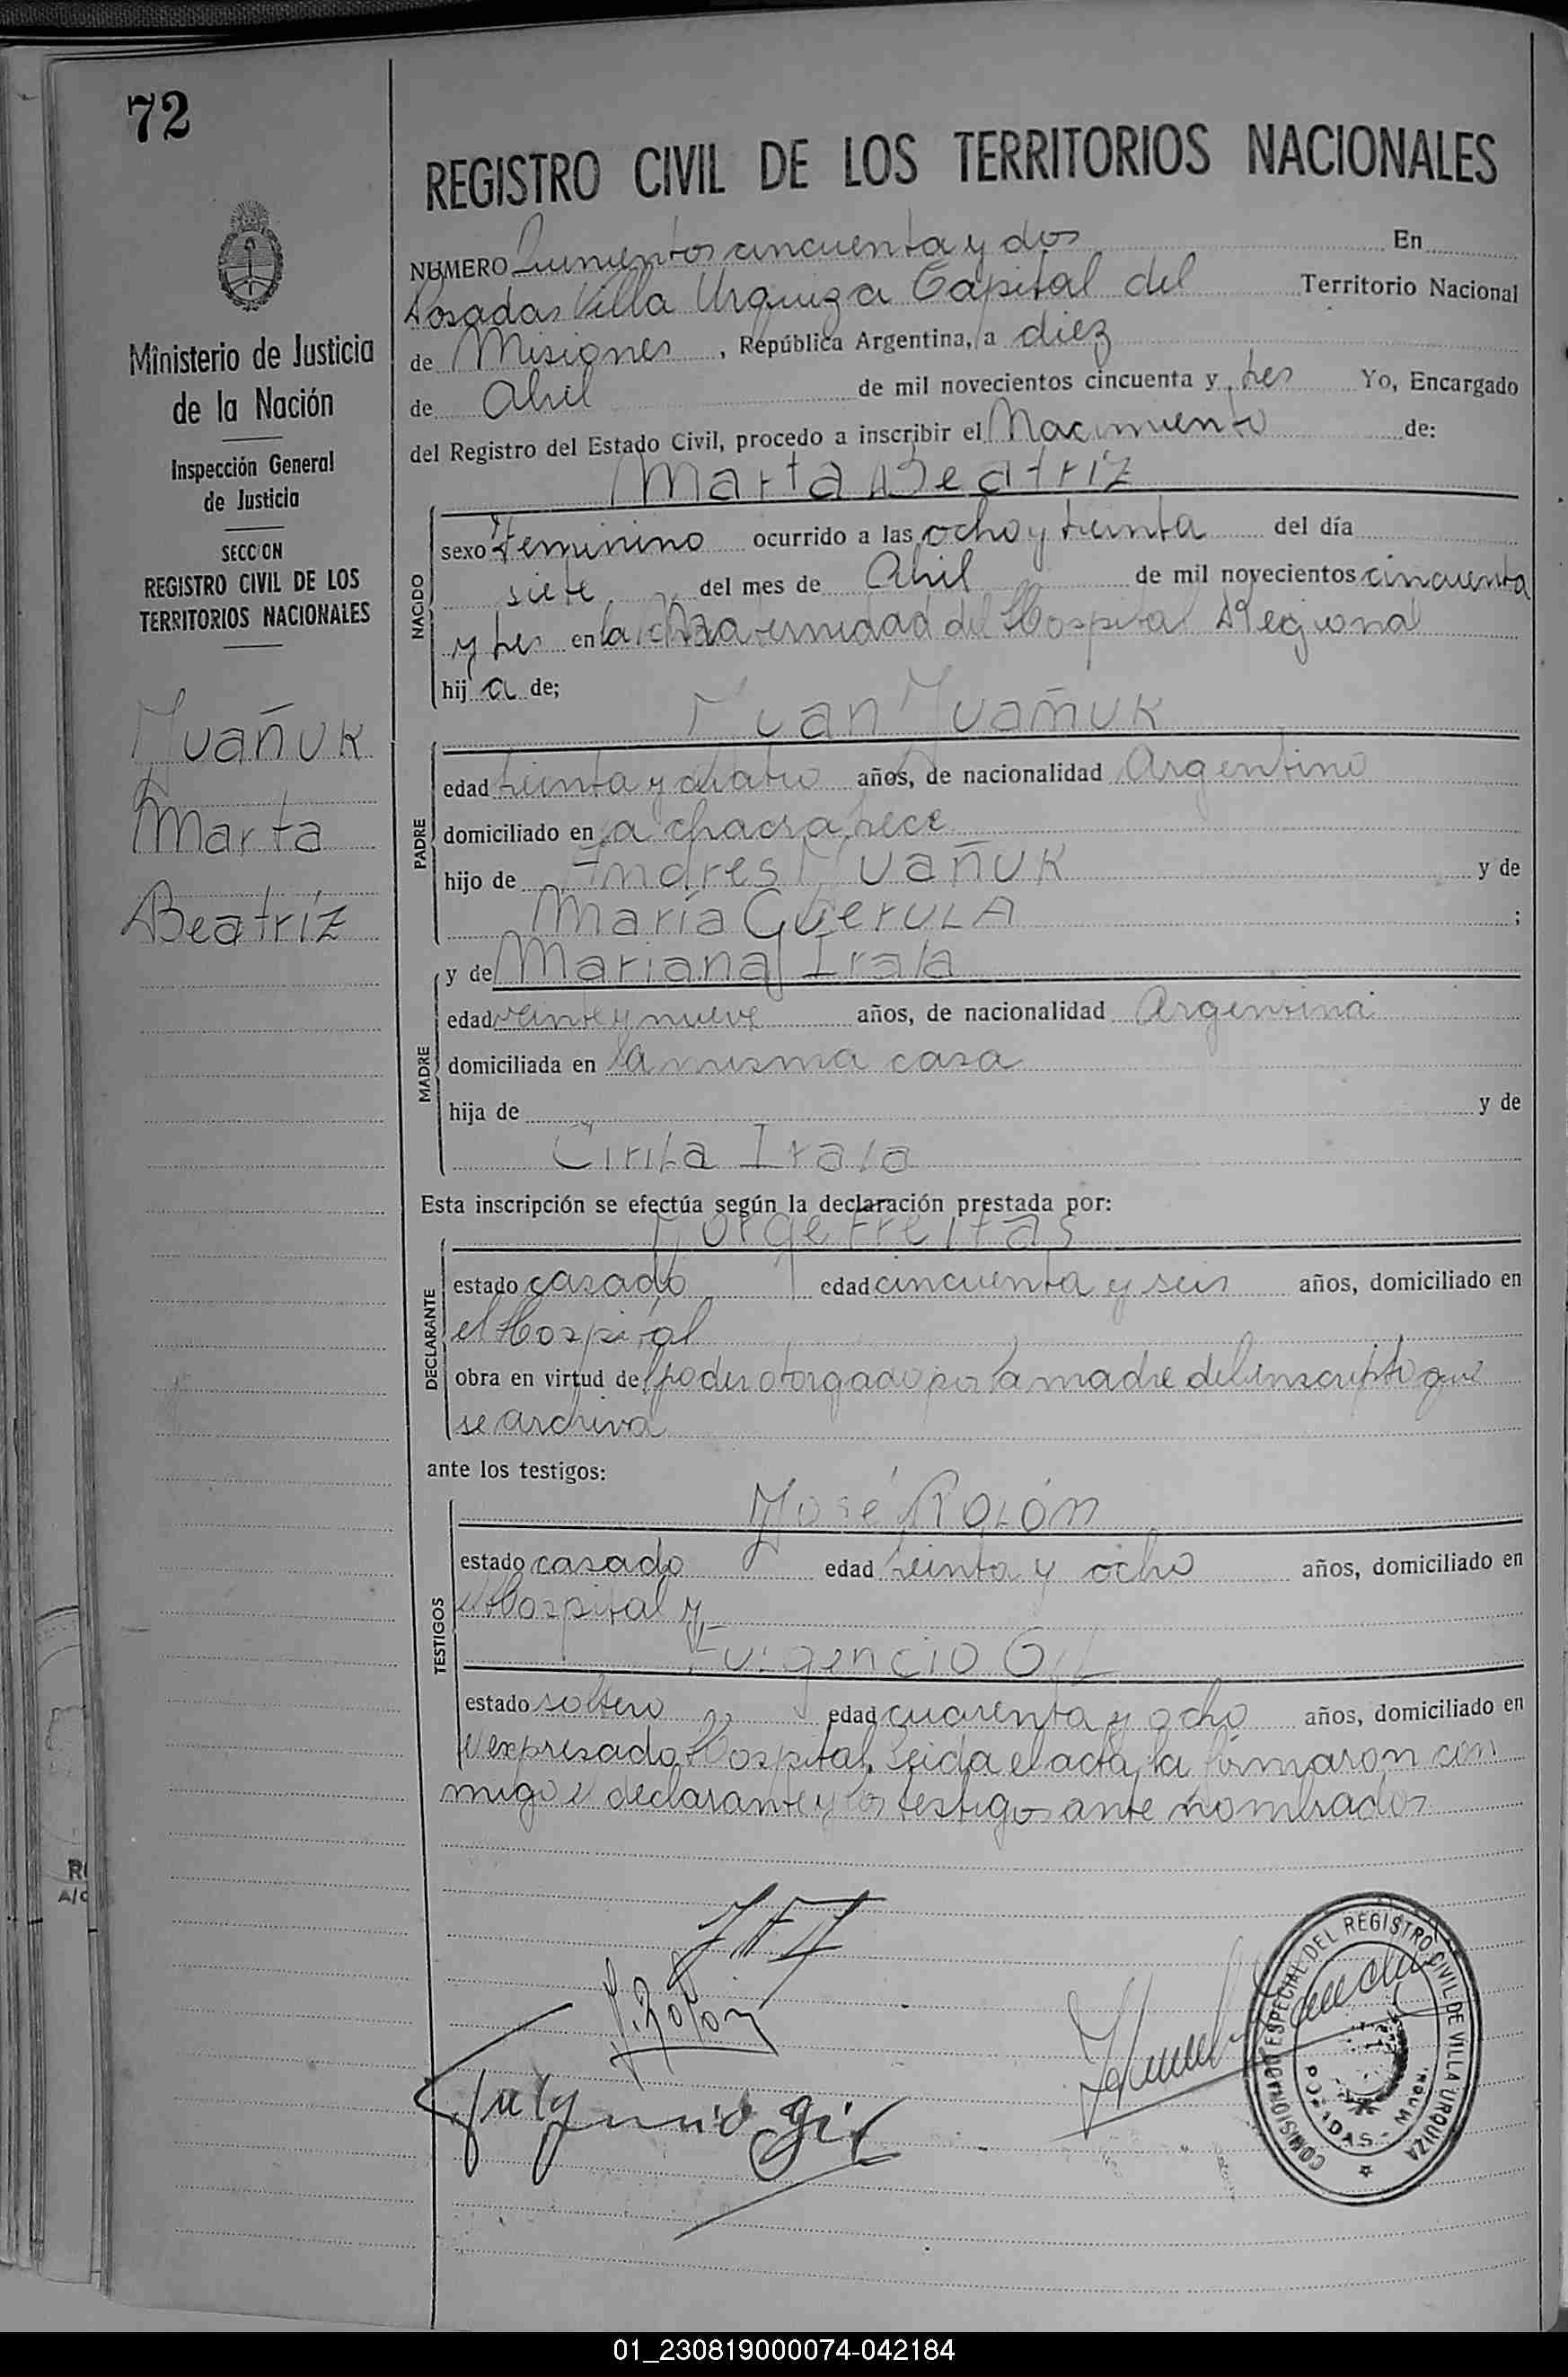 72
REGISTRO CIVIL DE LOS TERRITORIOS NACIONALES
NUMERO cincuenta y dos En
Posadas Villa Urquiza Capital del Territorio Nacional
de Misiones, República Argentina, a diez
de Abril de mil novecientos cincuenta y tres Yo, Encargado
del Registro del Estado Civil, procedo a inscribir el Nacimiento de:
Marta Beatríz
NACIDO
sexo Femenino ocurrido a las ocho y treinta del día
siete del mes de Abril de mil novecientos cincuenta
y tres en la Maternidad del Hospital Regional
hija de;
Juan Juañuk
PADRE
edad treinta y cuatro años, de nacionalidad Argentino
domiciliado en la chacra trece
hijo de Andres Juañuk y de
María ;
MADRE
y de Mariana Irala
edad veinte y nueve años, de nacionalidad Argentina
domiciliada en la misma casa
hija de y de
Cirila Irala
Esta inscripción se efectúa según la declaración prestada por:
Jorge Freitas
DECLARANTE
estado casado edad cincuenta y seis años, domiciliado en
el Hospital
obra en virtud del poder otorgado por la madre del inscripto que
se archiva
ante los testigos:
José Rolón
TESTIGOS
estado casado edad treinta y ocho años, domiciliado en
el Hospital y
Fulgencio Gil
estado soltero edad cuarenta y ocho años, domiciliado en
el expresado Hospital. Leida el acta, la firmaron con
migo el declarante y los testigos ante nombrados
J. Rolon
Fulgencio Gil
COMISIONADO ESPECIAL DEL REGISTRO CIVIL DE VILLA URQUIZA
POSADAS.-
Ministerio de Justicia
de la Nación
Inspección General
de Justicia
SECCION
REGISTRO CIVIL DE LOS
TERRITORIOS NACIONALES
Juañuk
Marta
Beatríz
01_230819000074-042184